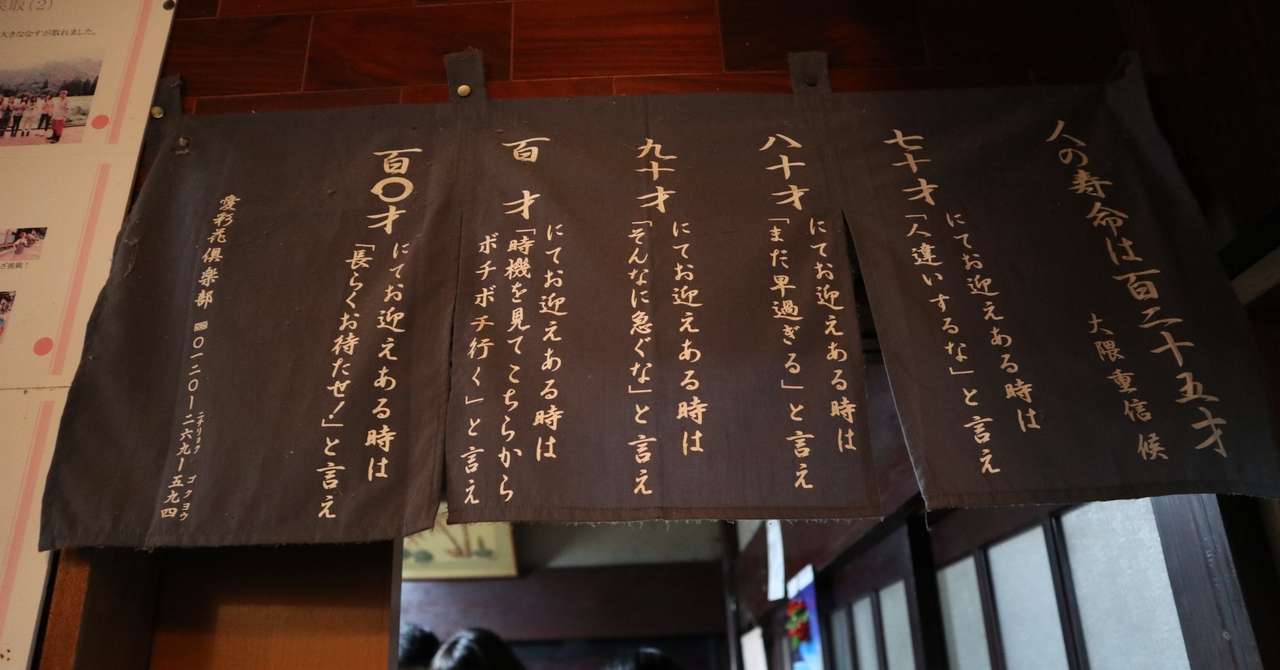 人の寿命は百二十五才
大隈重信 候
七十才
にてお迎えある時は
「人違いするな」と言え
八十才
にてお迎えある時は
「まだ早過ぎる」と言え
九十才
にてお迎えある時は
「そんなに急ぐな」と言え
百才
にてお迎えある時は
「時機を見てこちらから
ボチボチ行く」と言え
百〇才
にてお迎えある時は
「長らくお待たせ!」と言え
愛彩花倶楽部 〇一二〇ー二六九ー五九四
ニチリョク ゴクヨウ
大きななすが取れました。